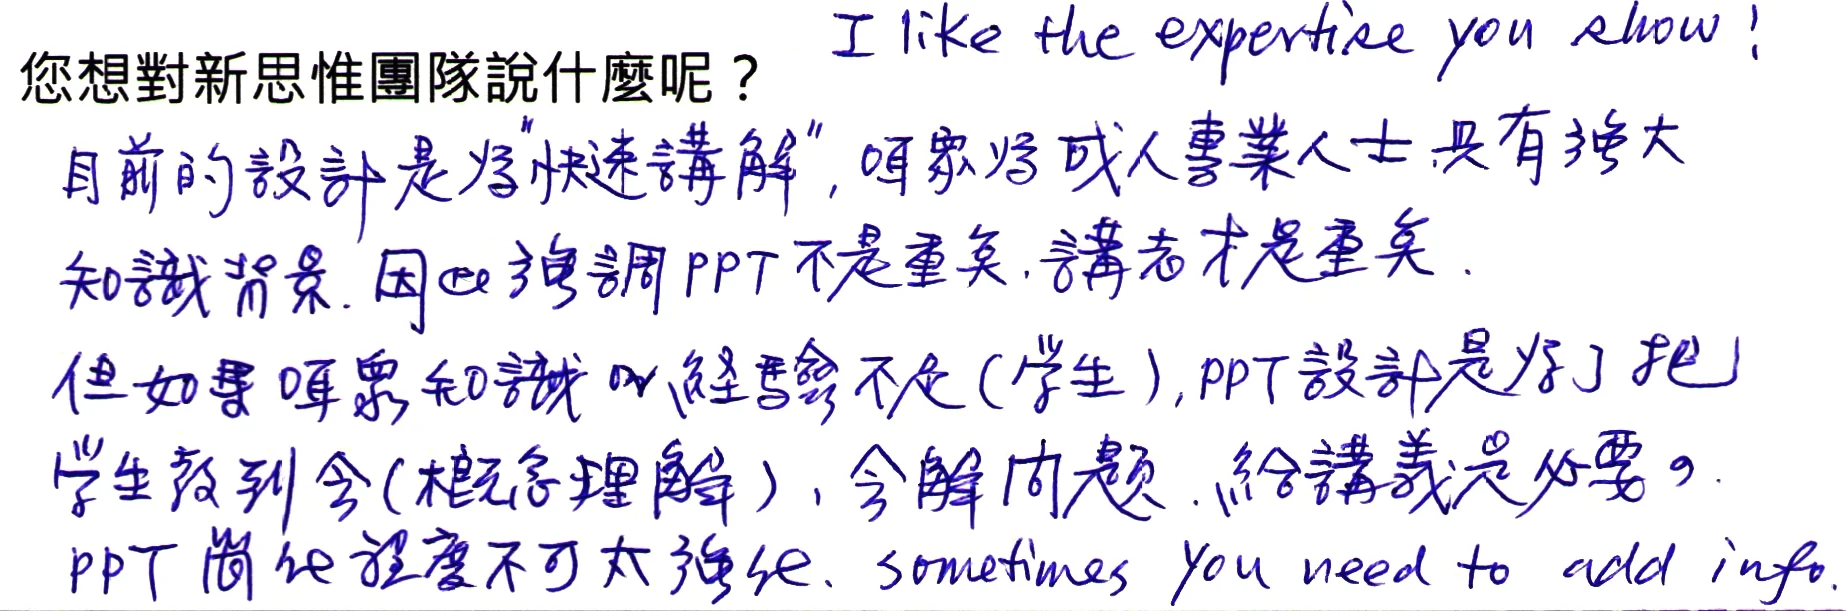 I like the expertise you show!
您想對新思惟團隊說什麼呢？
目前的設計是為"快速講解"，咡眾為成人專業人士具有強大
知識背景. 因此強調PPT不是重矣. 講者才是重矣.
但如果咡眾知識or経驗不足(学生), PPT設計是為了把
学生教到会(概念理解), 会解问题. 給講義是必要的.
PPT 簡化程度不可太強化. sometimes you need to add info.